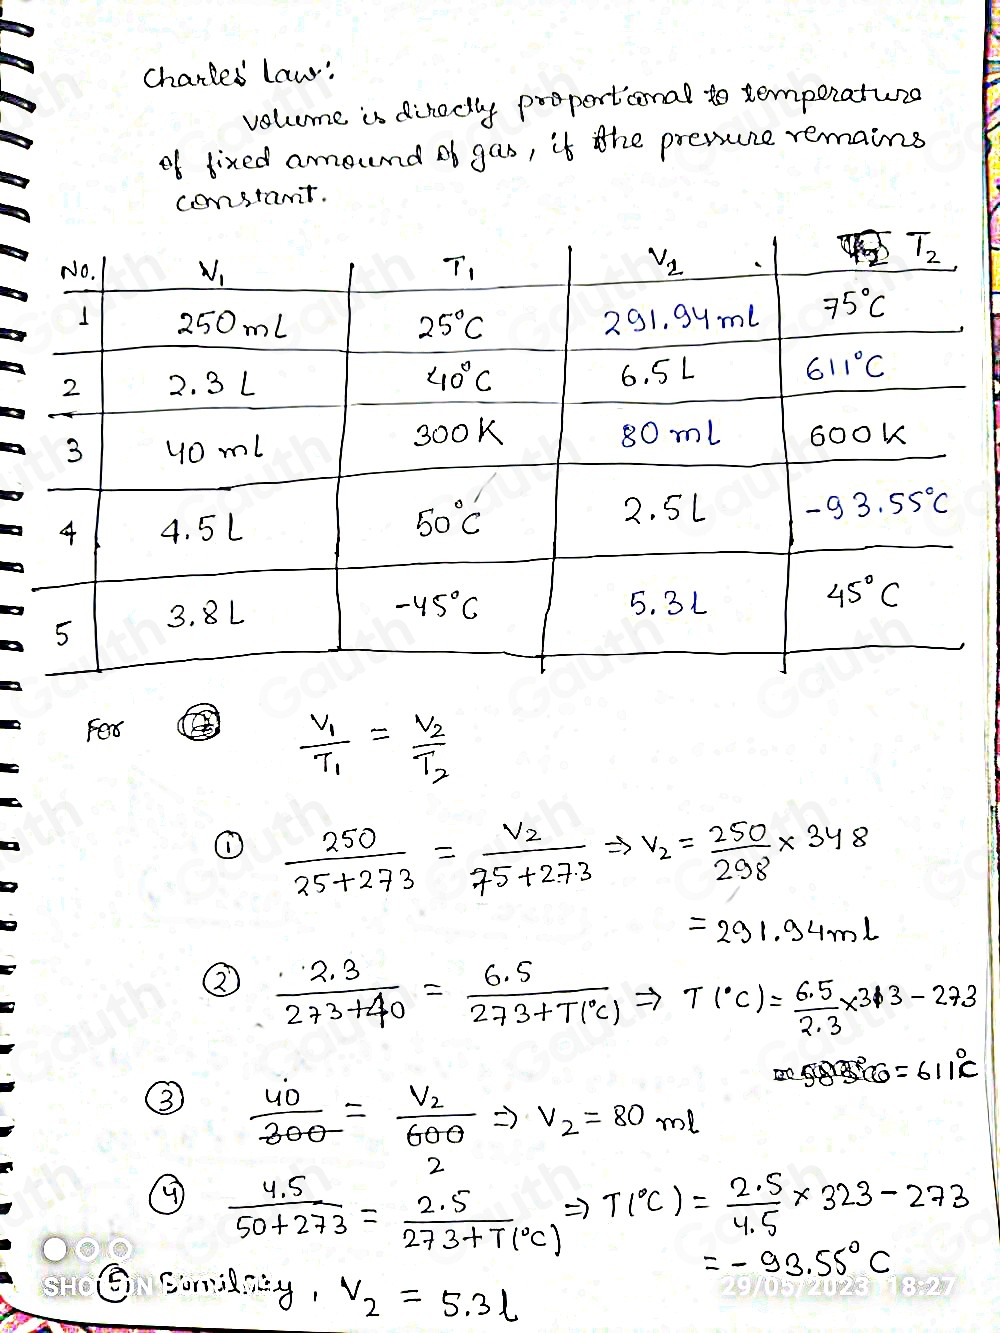 Charles' Law:
volume is directly proportional to temperature
of fixed amound of gas, if the pressure remains
constant.
No. V₁ T₁ V₂ T₂
1 250 mL 25°C 291.94 ml 75°C
2 2.3 L 40°C 6.5 L 611°C
3 40 ml 300K 80 ml 600K
4 4.5 L 50°C 2.5 L -93.55°C
5 3.8 L -45°C 5.3 L 45°C
For V₁/T₁ = V₂/T₂
① 250/(25+273) = V₂/(75+273) ⇒ V₂ = 250/298 × 348
= 291.94 ml
② 2.3/(273+40) = 6.5/(273+T(°C)) ⇒ T(°C) = 6.5/2.3 × 313 - 273
= 611°C
③ 40/300 = V₂/600 2 ⇒ V₂ = 80 ml
④ 4.5/(50+273) = 2.5/(273+T(°C)) ⇒ T(°C) = 2.5/4.5 × 323 - 273
= -93.55°C
⑤ Similary, V₂ = 5.3 l
29/05/2023 18:27
Gauth